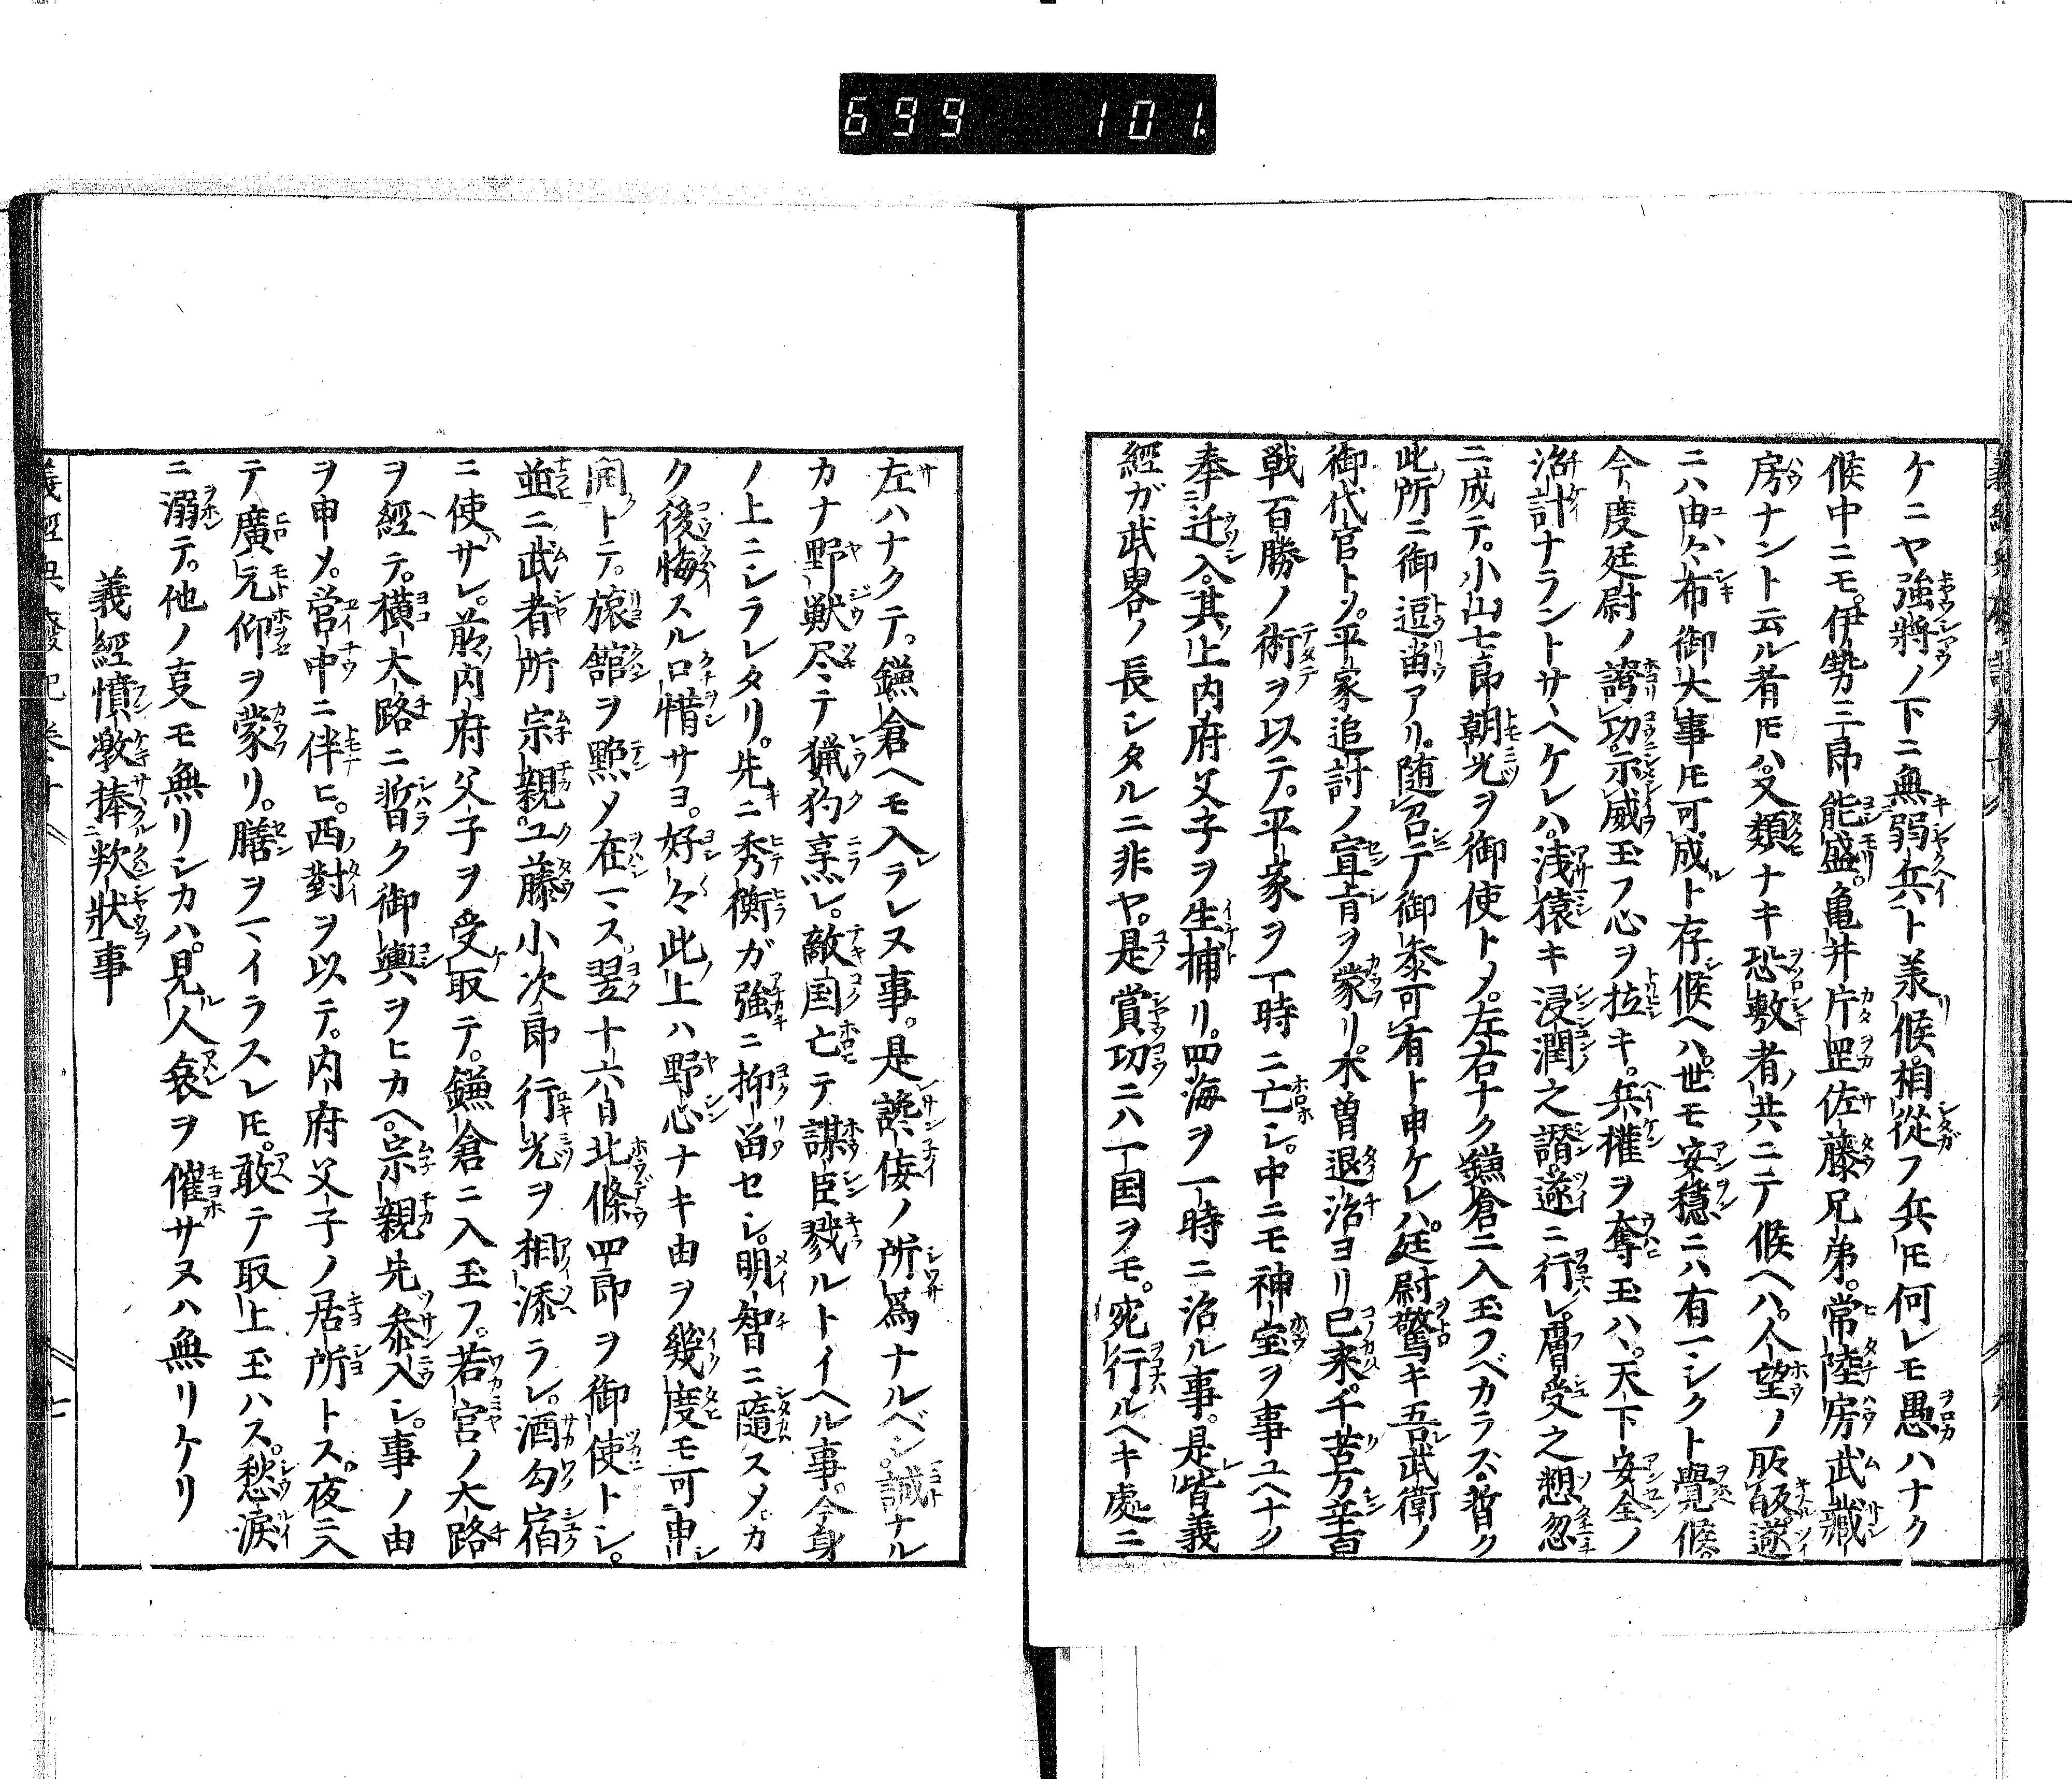 699 101.
ケニヤ強將ノ下ニ無弱兵ト羕リ候相從フ兵𪜈何レモ愚ハナク
候中ニモ伊勢三郎能盛。亀井片罡佐藤兄弟。常陸房武藏
房ナント云ル者𪜈ハ又類ナキ恐敷者ノ共ニテ候ヘハ。人望ノ所皈遂
ニハ由々布御大事𪜈可成ト存候ヘハ。世モ安穏ニハ有マシクト覺候。
今度廷尉ノ誇功示威玉フ心ヲ拉キ。兵權ヲ奪玉ハヽ。天下安全ノ
治計ナラントサヽヘケレハ。浅猿キ浸潤之譖遂ニ行レ。膚受之愬忽
ニ成テ。小山七郎朝光ヲ御使トメ。左右ナク鎌倉ニ入玉フベカラス。暫ク
此所ニ御逗畄アリ。随召テ御叅可有ト申ケレハ。廷尉驚キ吾武衛ノ
御代官トメ。平家追討ノ宣旨ヲ蒙リ。木曽退治ヨリ已来。千苦万辛百
戦百勝ノ術ヲ以テ。平家ヲ一時ニ亡シ。中ニモ神宝ヲ事ユヘナク
奉迁入。其上内府父子ヲ生捕リ。四海ヲ一時ニ治ル事。是皆義
經ガ武畧ノ長シタルニ非ヤ。是賞功ニハ一国ヲモ。宛行ルヘキ處ニ
左ハナクテ。鎌倉ヘモ入ラレヌ事。是讒侫ノ所爲ナルベシ。誠ナル
カナ野獣尽テ猟狗烹ラレ。敵国亡テ謀臣戮ルトイヘル事。今身
ノ上ニシラレタリ。先ニ秀衡ガ強ニ抑畄セシ。明智ニ隨スメ。カ
ク後悔スル口惜サヨ。好々此上ハ野心ナキ由ヲ幾度モ可申
開トテ。旅舘ヲ㸃メ在マス。翌十六日北條四郎ヲ御使トシ。
並ニ武者所宗親。工藤小次郎行光ヲ相添ラレ。酒匂宿
ニ使サレ。前内府父子ヲ受取テ。鎌倉ニ入玉フ。若宮ノ大路
ヲ經テ。橫大路ニ暫ク御輿ヲヒカヘ。宗親先叅入シ。事ノ由
ヲ申メ。営中ニ伴ヒ。西對ヲ以テ。内府父子ノ居所トス。夜ニ入
テ廣元仰ヲ蒙リ。膳ヲマイラスレ𪜈。敢テ取上玉ハス。愁涙
ニ溺テ。他ノ㕝モ無リシカハ。見人哀ヲ催サヌハ無リケリ
義經憤激捧欵狀事